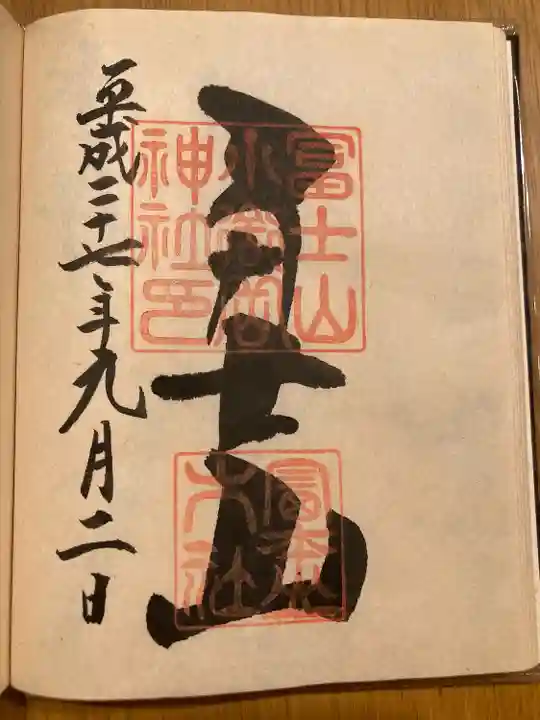 富士山
平成二十七年九月二日
富士山
小御嶽
神社印
大社